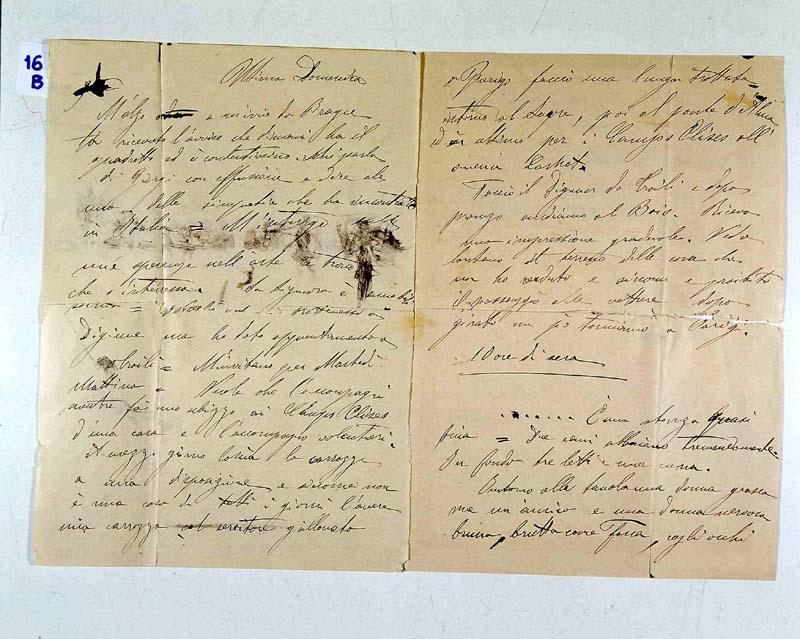 16
B
Ultima Domenica
M'alzo e m'avvio da Bragu
Ho ricevuto l'avviso che ha il
quadretto ed è contentissimo. Mi parla
di Giorgi con effusione e dire che
una delle simpatie che ha incontrate
in Italia = M'interroga sulle
mie speranze nell'arte e trovo
che s'interessa. La signora è
Digiune ma ho dato appuntamento a
Troili = M'invitano per Martedì
Mattina = Vuole che l'accompagni
mentre fa uno schizzo ai Champs Elisés
d'una casa e l'accompagno volentieri.
A mezzo giorno lascia la carrozza
a mia disposizione e siccome non
è una cosa di tutti i giorni l'avere
una carrozza col servitore gallonato
a Parigi faccio una lunga trottata
intorno al poi al ponte d'Alma
ed in ultimo per i Camps Elisés all'
Faccio il Signor da Troili e dopo
pranzo andiamo al Bois. Ricevo
una impressione gradevole. Vedo
lontano il terreno delle corse che
non ho veduto e siccome è proibito
il passaggio alle vetture dopo
girato un pò torniamo a Parigi.
10 ore di sera
....... È una stanza quasi
buia = Due cani abbaiano tremendamente
In fondo tre letti e una cuna.
Intorno alla tavola una donna grassa
ma un amico e una donna nervosa
bruna, brutta come, cogli occhi